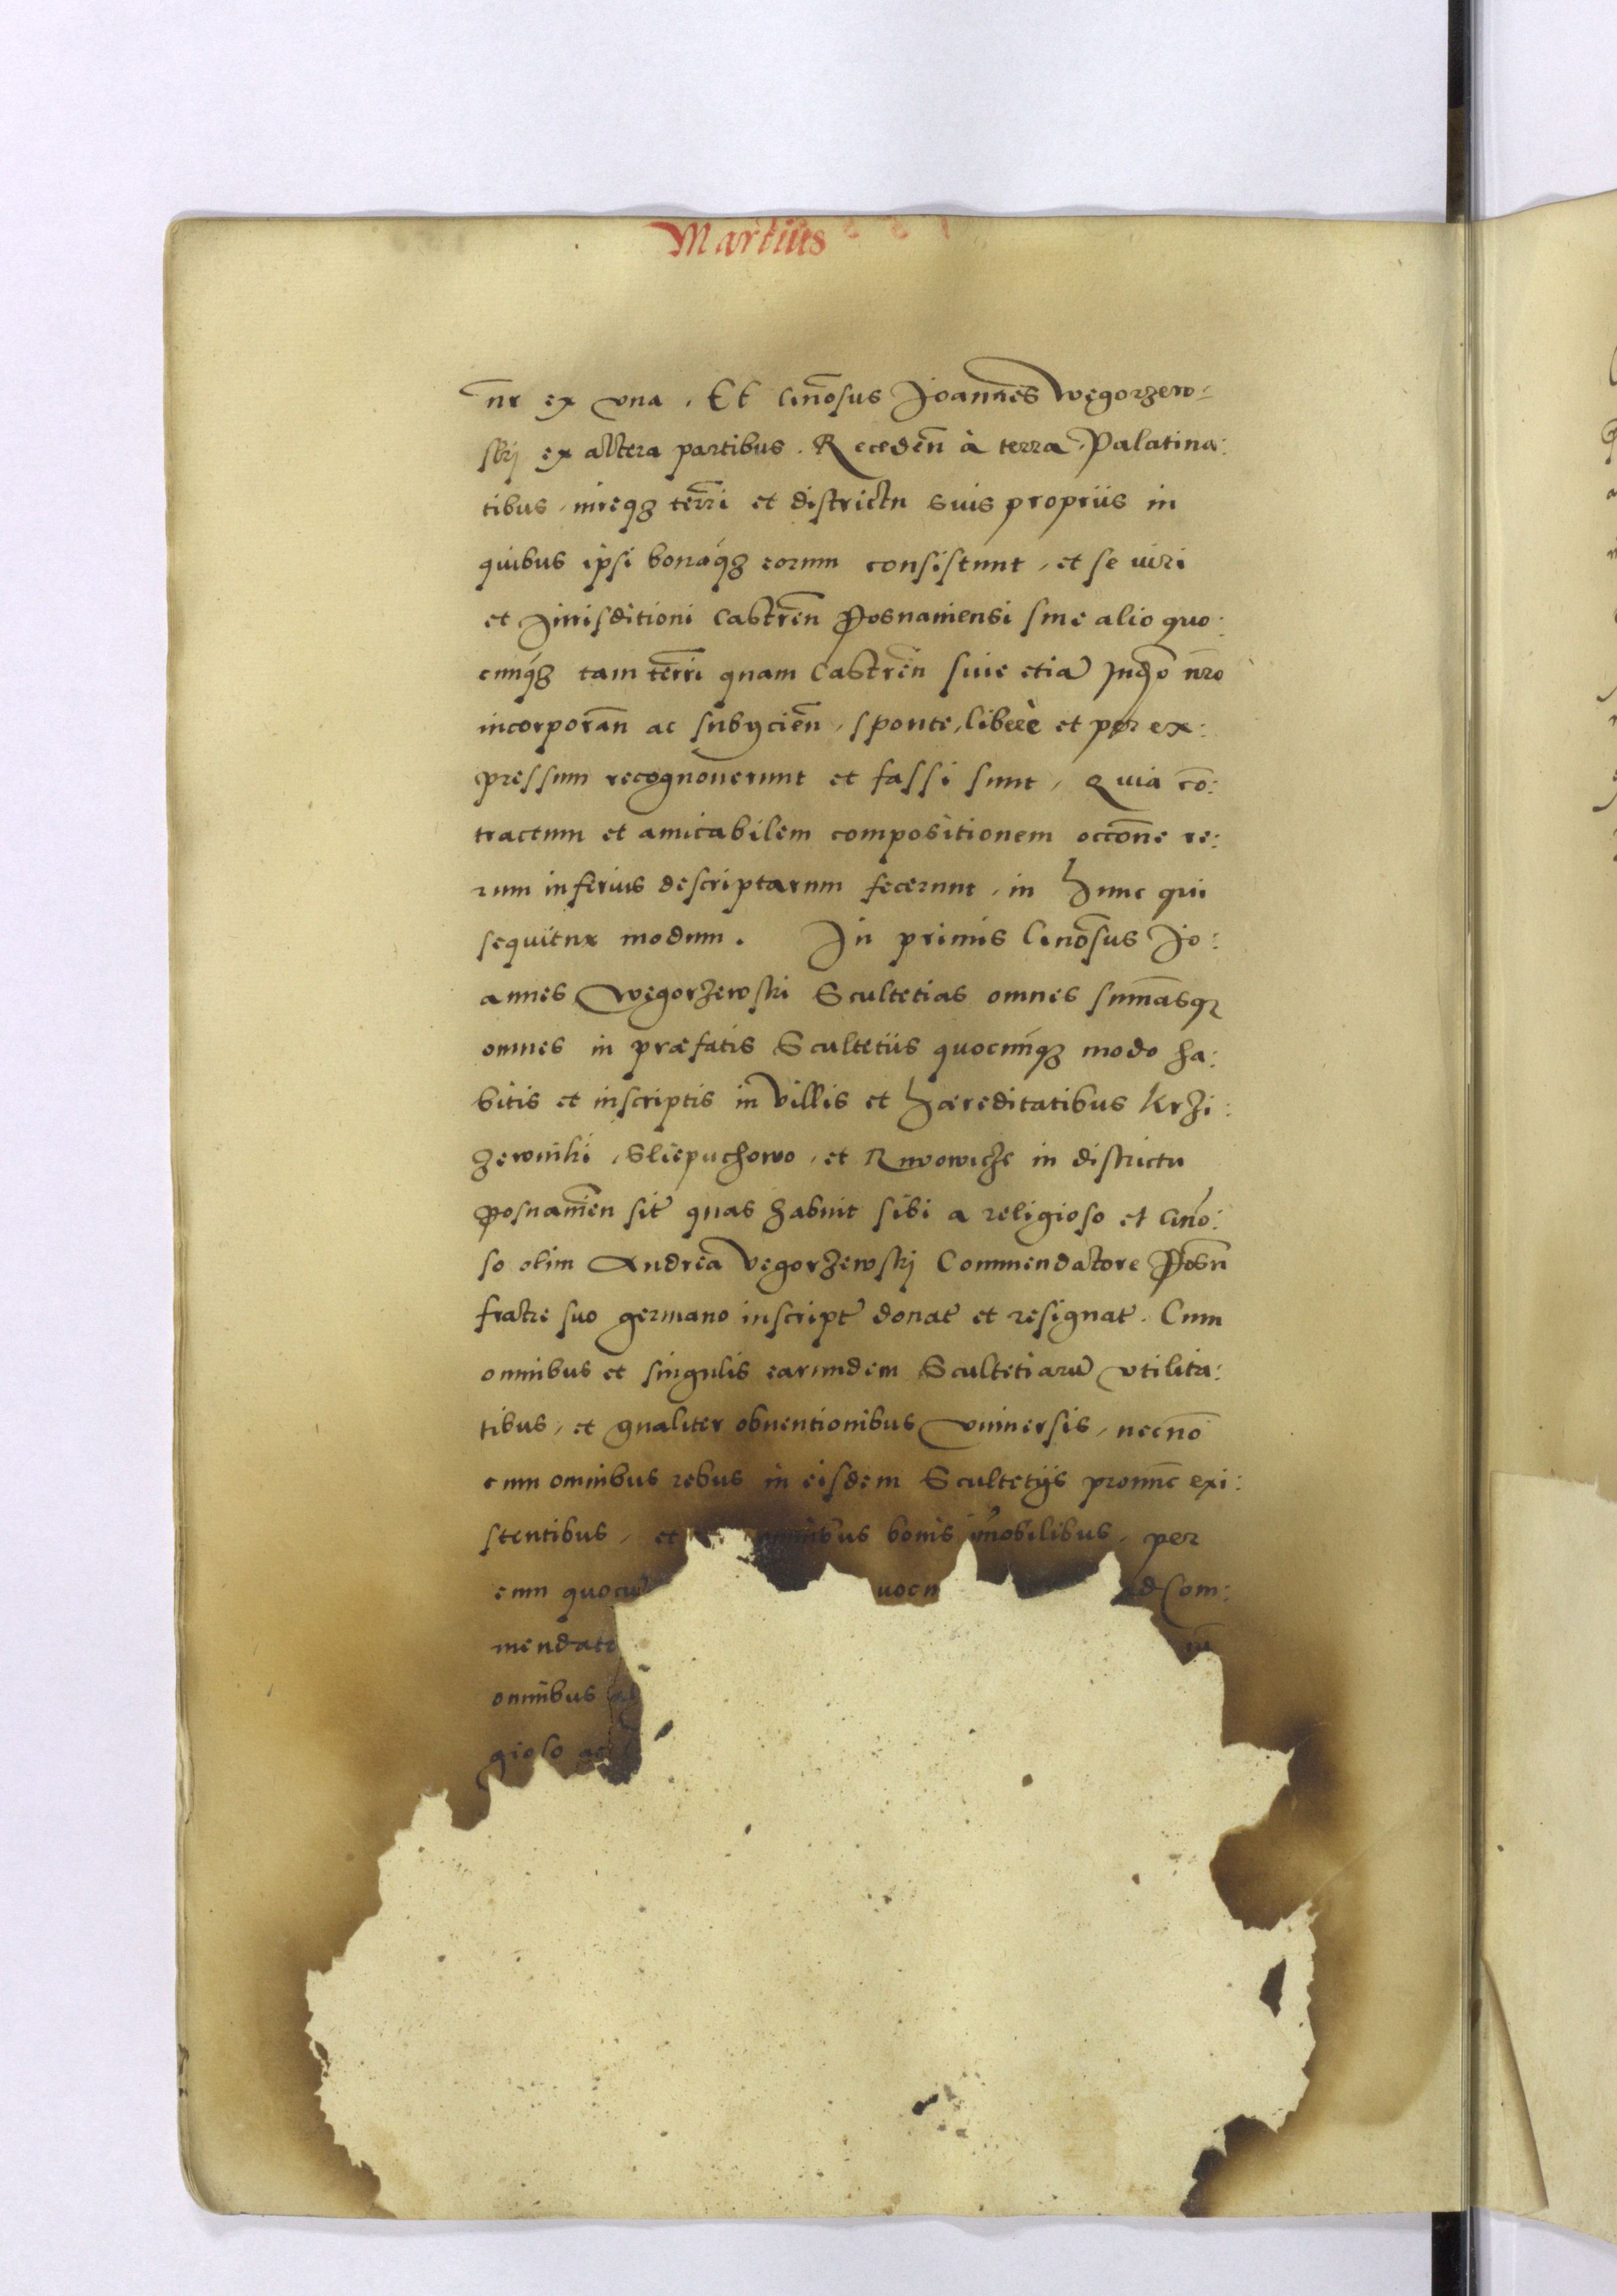 Martius
nr̄ ex vna. Et Gn̄osus Joannes Węgorzew:
skj ex altera partibus. Receden̄ à terra Palatina:
tibus, iureqз terr̄i et districtu suis propriis in
quibus ipsi bonaqз eorum consistunt, et se iuri
et Jurisditioni Castren̄ Posnaniensi sine alio quo:
cunqз tam terr̄i quam Castren̄ siue etiā Judō nr̄o
incorporan̄ ac subycien̄, sponte, liberè et per ex:
pressum recognouerunt et fassi sunt, Quia cō:
tractum et amicabilem compositionem occōne re:
rum inferius descriptarum fecerunt, in hunc qui
sequitur modum. In primis Gn̄osus Jo:
annes Węgorzewski Scultetias omnes sum̄asqз
omnes in præfatis Scultetiis quocunqз modo ha:
bitis et inscriptis in villis et hæreditatibus Krzi:
zewniki, Sliepuchowo, et in districtu
posnanien̄ sit̄ quas habuit sibi a religioso et Gn̄o:
so olim Andrea Vegorzewskj Commendatore Posn̄
fratre suo germano inscript̄ donat̄ et resignat̄. Cum
omnibus et singulis earundem Scultetiarū vtilita:
tibus, et qualiter obuentionibus vniuersis, necnō
cum omnibus rebus in eisdem Scultetijs pronunc exi:
stentibus, et omnibus bonis im̄obilibus, per
eum quocu uocu ad Com:
mendato
omnibus
gioso